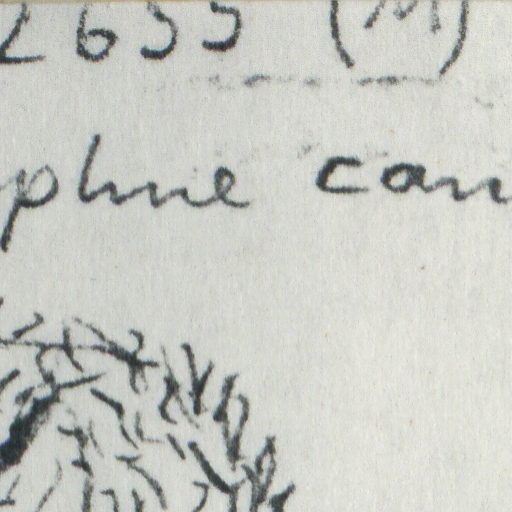 2655 (M)
phne can